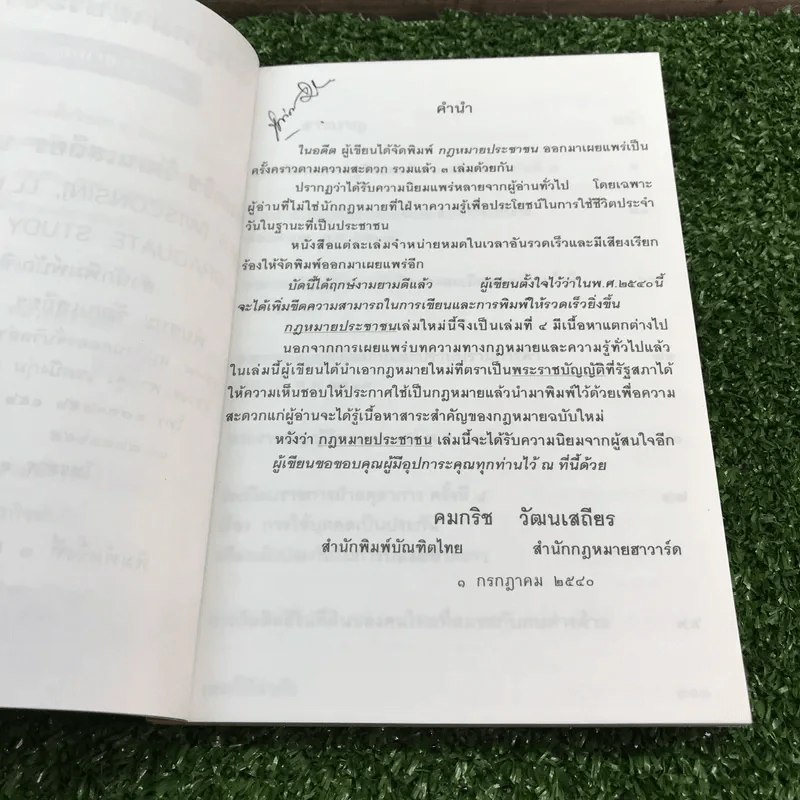 คำนำ
ในอดีต ผู้เขียนได้จัดพิมพ์ กฎหมายประชาชน ออกมาเผยแพร่เป็น
ครั้งคราวตามความสะดวก รวมแล้ว ๓ เล่มด้วยกัน
ปรากฏว่าได้รับความนิยมแพร่หลายจากผู้อ่านทั่วไป โดยเฉพาะ
ผู้อ่านที่ไม่ใช่นักกฎหมายที่ใฝ่หาความรู้เพื่อประโยชน์ในการใช้ชีวิตประจำ
วันในฐานะที่เป็นประชาชน
หนังสือแต่ละเล่มจำหน่ายหมดในเวลาอันรวดเร็วและมีเสียงเรียก
ร้องให้จัดพิมพ์ออกมาเผยแพร่อีก
บัดนี้ได้ฤกษ์งามยามดีแล้ว ผู้เขียนตั้งใจไว้ว่าในพ.ศ.๒๕๔๐นี้
จะได้เพิ่มขีดความสามารถในการเขียนและการพิมพ์ให้รวดเร็วยิ่งขึ้น
กฎหมายประชาชนเล่มใหม่นี้จึงเป็นเล่มที่ ๔ มีเนื้อหาแตกต่างไป
นอกจากการเผยแพร่บทความทางกฎหมายและความรู้ทั่วไปแล้ว
ในเล่มนี้ผู้เขียนได้นำเอากฎหมายใหม่ที่ตราเป็นพระราชบัญญัติที่รัฐสภาได้
ให้ความเห็นชอบให้ประกาศใช้เป็นกฎหมายแล้วนำมาพิมพ์ไว้ด้วยเพื่อความ
สะดวกแก่ผู้อ่านจะได้รู้เนื้อหาสาระสำคัญของกฎหมายฉบับใหม่
หวังว่า กฎหมายประชาชน เล่มนี้จะได้รับความนิยมจากผู้สนใจอีก
ผู้เขียนขอขอบคุณผู้มีอุปการะคุณทุกท่านไว้ ณ ที่นี้ด้วย
คมกริช วัฒนเสถียร
สำนักพิมพ์บัณฑิตไทย สำนักกฎหมายฮาวาร์ด
๑ กรกฎาคม ๒๕๔๐